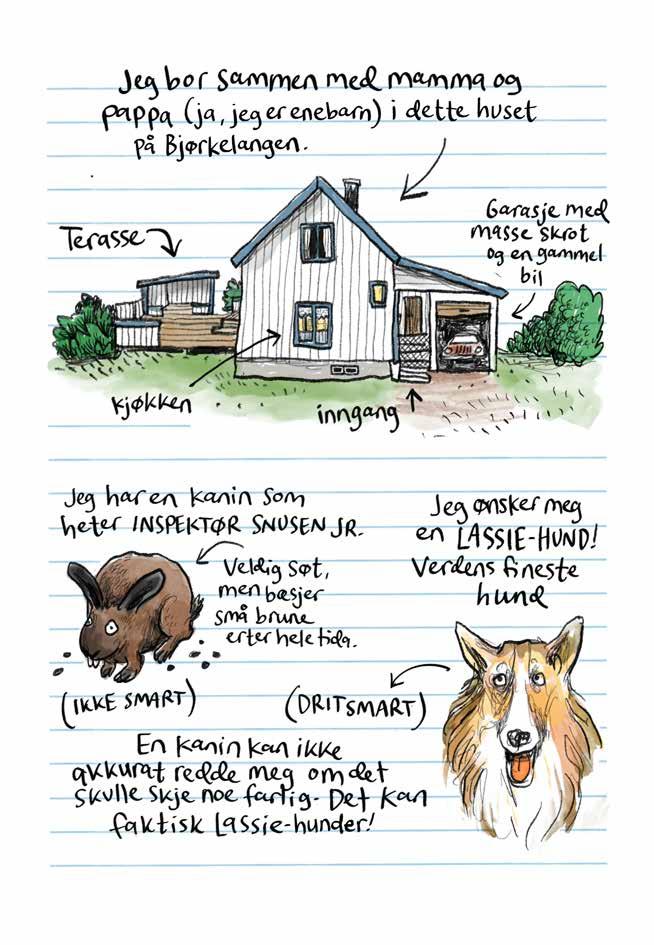 Jeg bor sammen med mamma og
pappa (ja, jeg er enebarn) i dette huset
på Bjørkelangen.
Terasse
Garasje med
masse skrot
og en gammel
bil
kjøkken
inngang
Jeg har en kanin som
heter INSPEKTØR SNUSEN JR.
Veldig søt,
men bæsjer
små brune
erter hele tida.
(IKKE SMART)
Jeg ønsker meg
en LASSIE-HUND!
Verdens fineste
hund
(DRITSMART)
En kanin kan ikke
akkurat redde meg om det
skulle skje noe farlig. Det kan
faktisk Lassie-hunder!